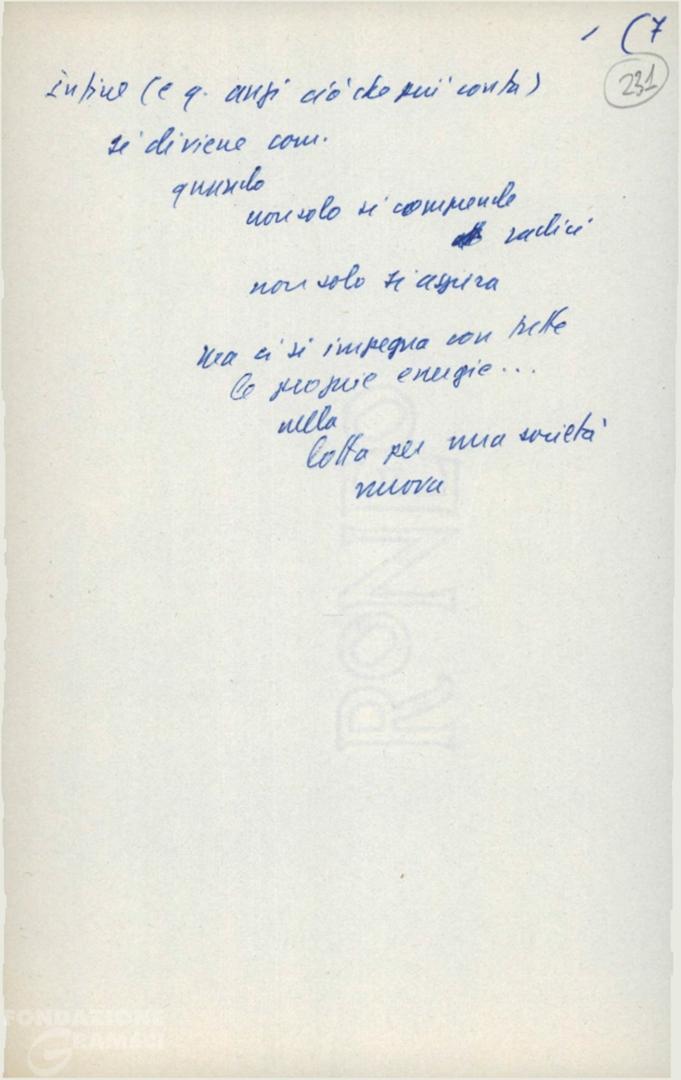 (7
231
Infine (e q. anzi ciò che più conta)
si diviene com.
quando
non solo si comprende
radici
non solo si aspira
ma ci si impegna con tutte
le proprie energie...
nella
lotta per una società
nuova
RONEO
FONDAZIONE
GRAMSCI